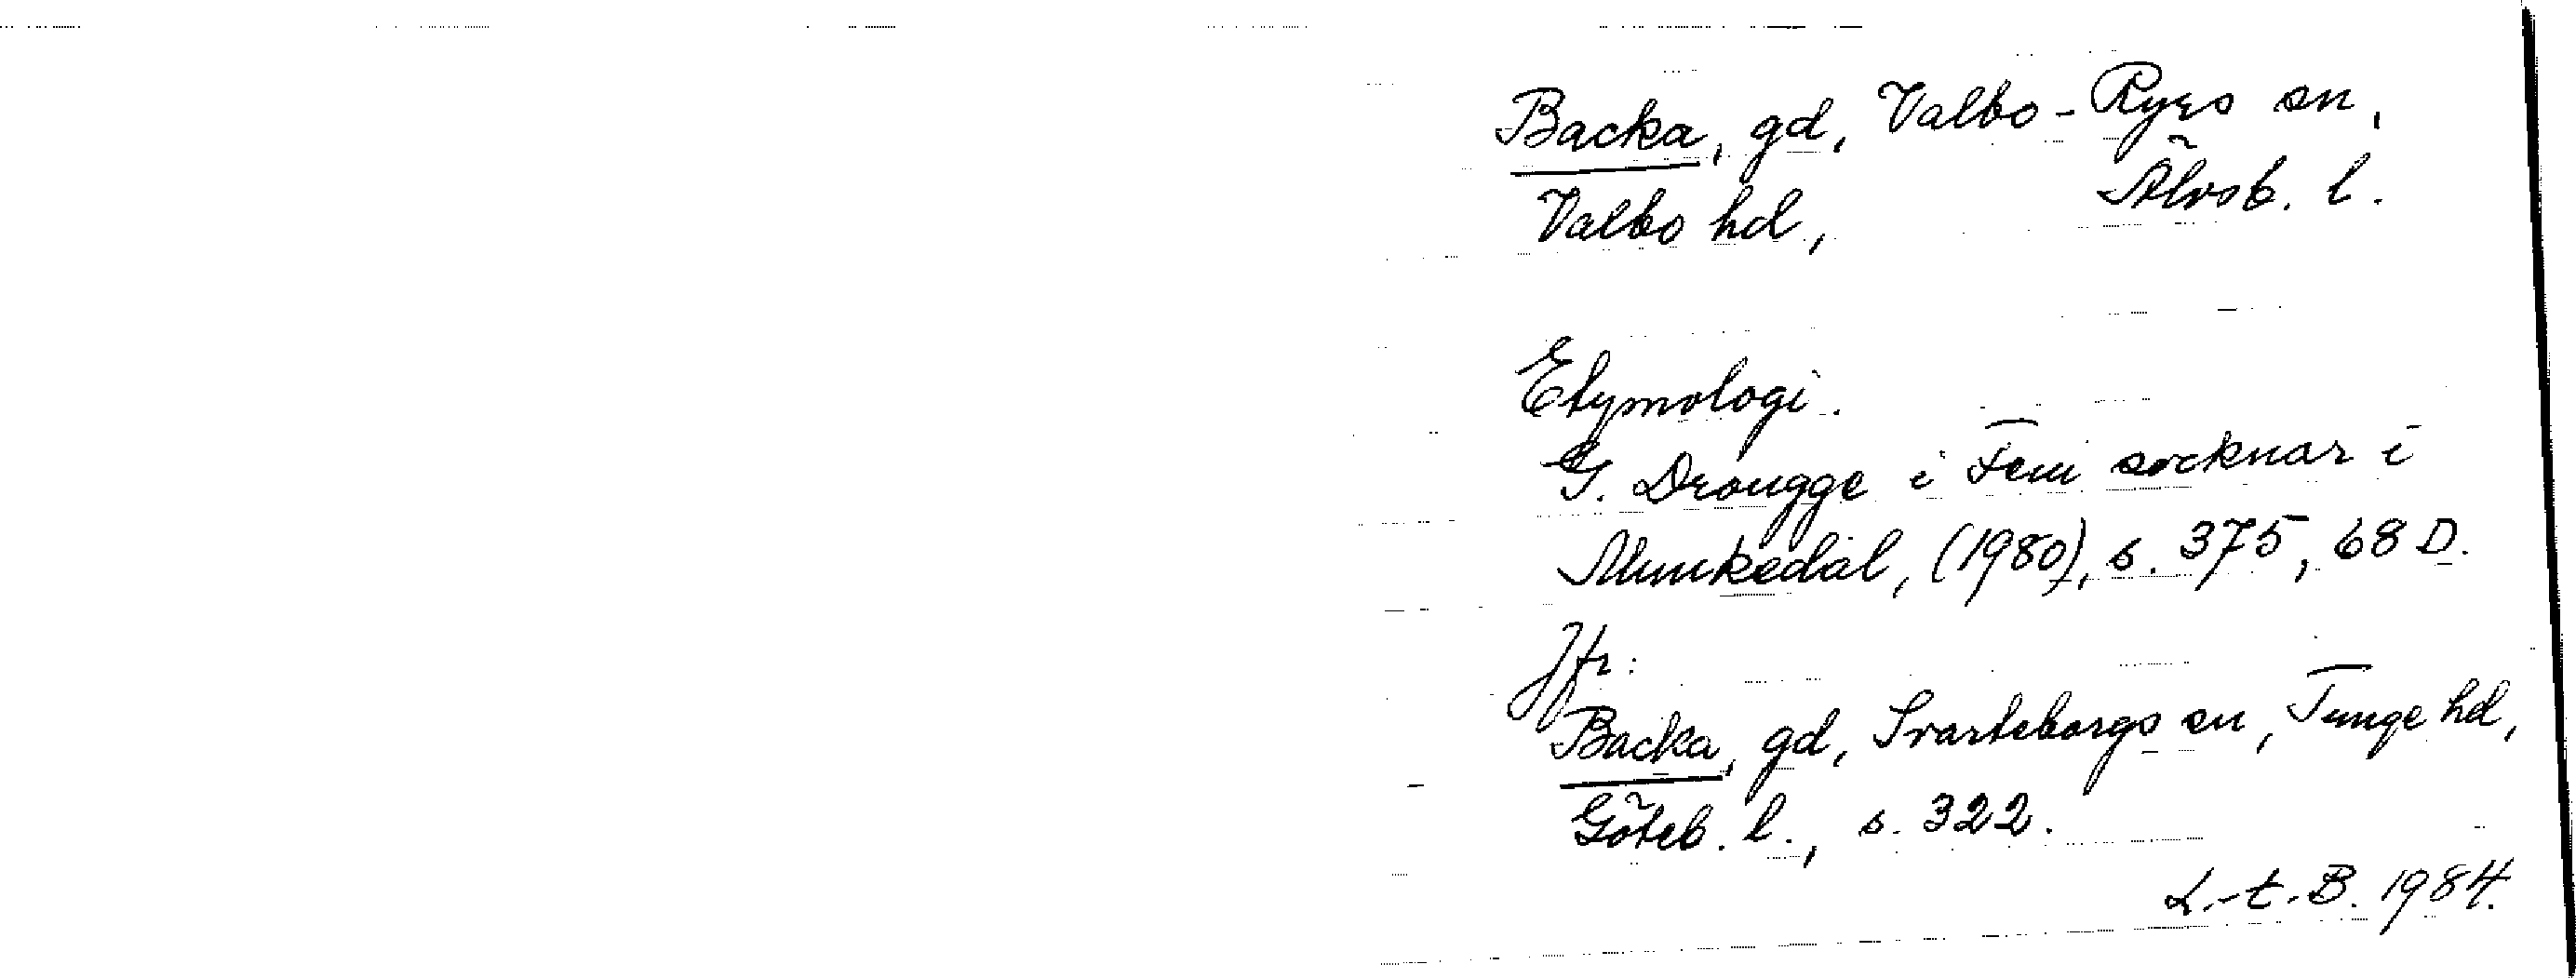 Backa, gd, Valbo-Ryrs sn,
Valbo hd, Älvsb. l.
Etymologi.
G. Drougge i Fem socknar i
Munkedal, (1980), s. 375, 68 D.
Jfr:
Backa, gd, Svarteborgs sn, Tunge hd,
Göteb. l., s. 322.
L.-t. B. 1984.